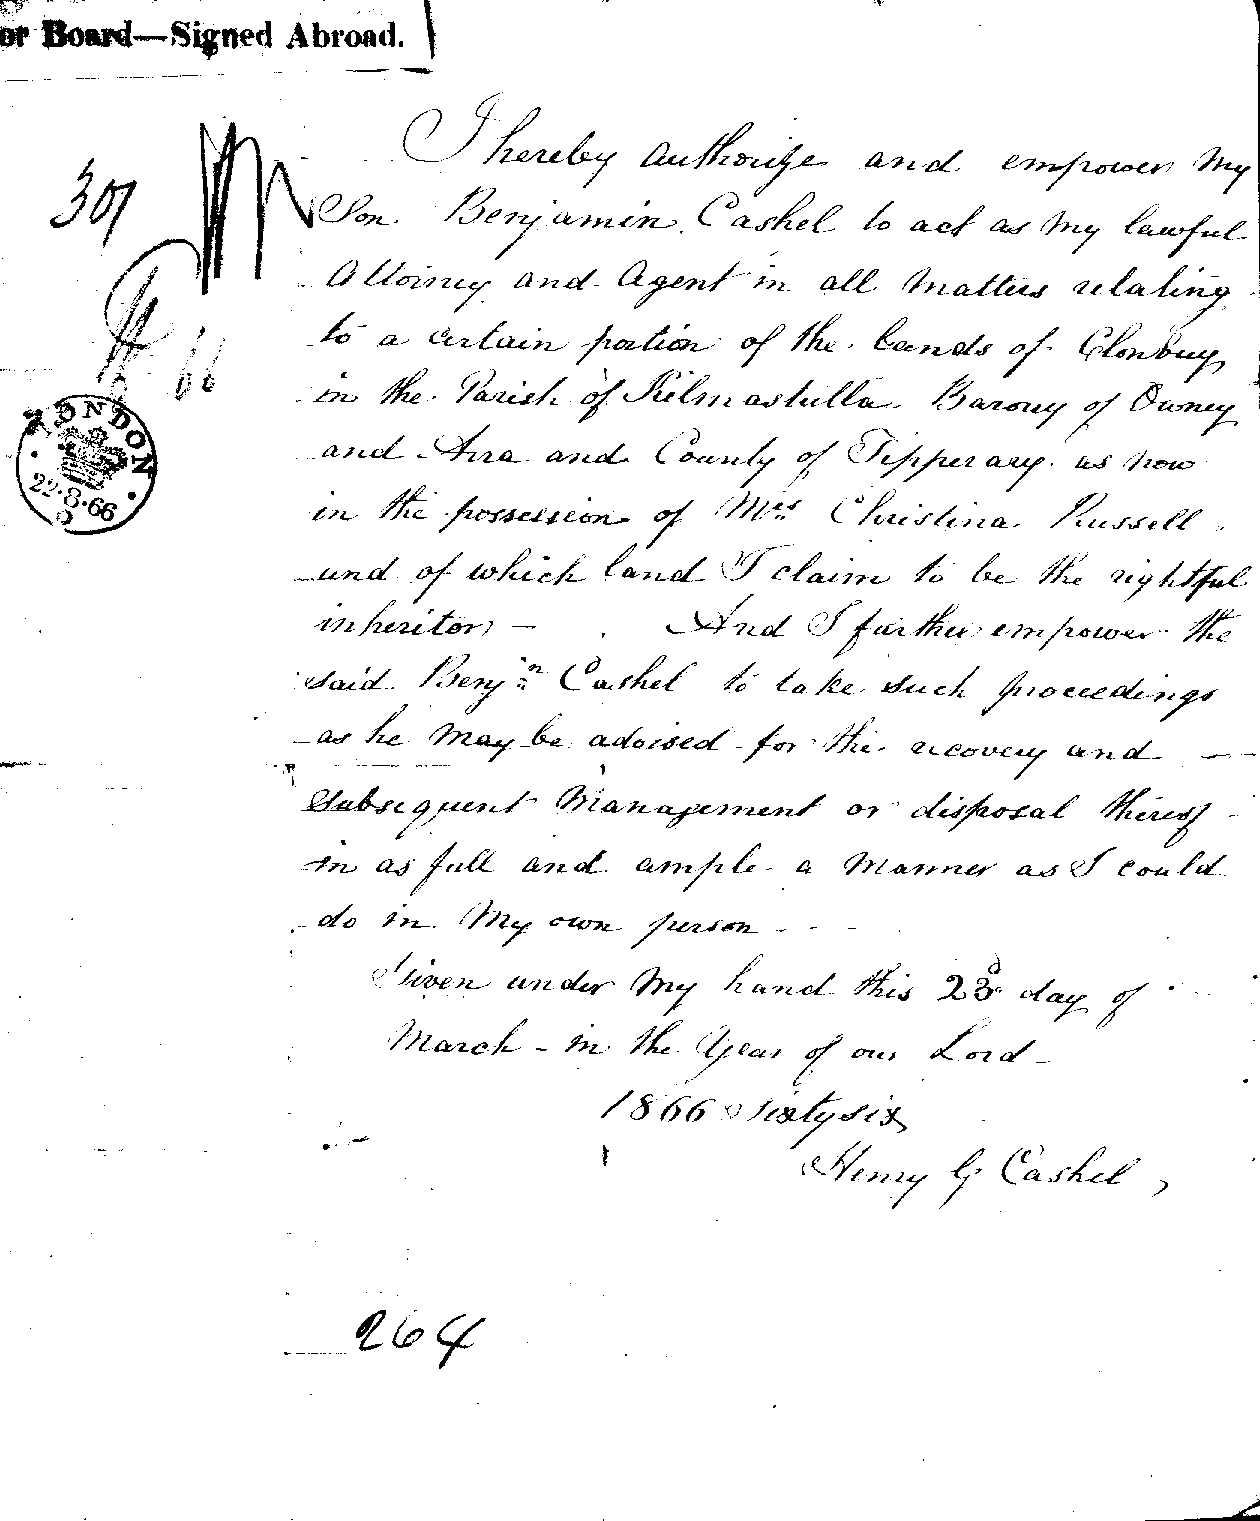 or Board—Signed Abroad.
I hereby authorize and empower my
301
Son Benjamin Cashel to act as my lawful
Attorney and Agent in all matters relating
to a certain portion of the lands of Clonbuy
66
in the Parish of Kilmastulla Barony of Owney
and Arra and County of Tipperary as now
LONDON
22·8·66
in the possession of Mrs Christina Russell
and of which land I claim to be the rightful
inheritor — And I further empower the
said Benjn Cashel to take such proceedings
as he may be advised for the recovery and
subsequent management or disposal thereof
in as full and ample a manner as I could
do in my own person
Given under my hand this 23d day of
March - in the Year of our Lord -
1866 Sixtysix
Henry G Cashel
264